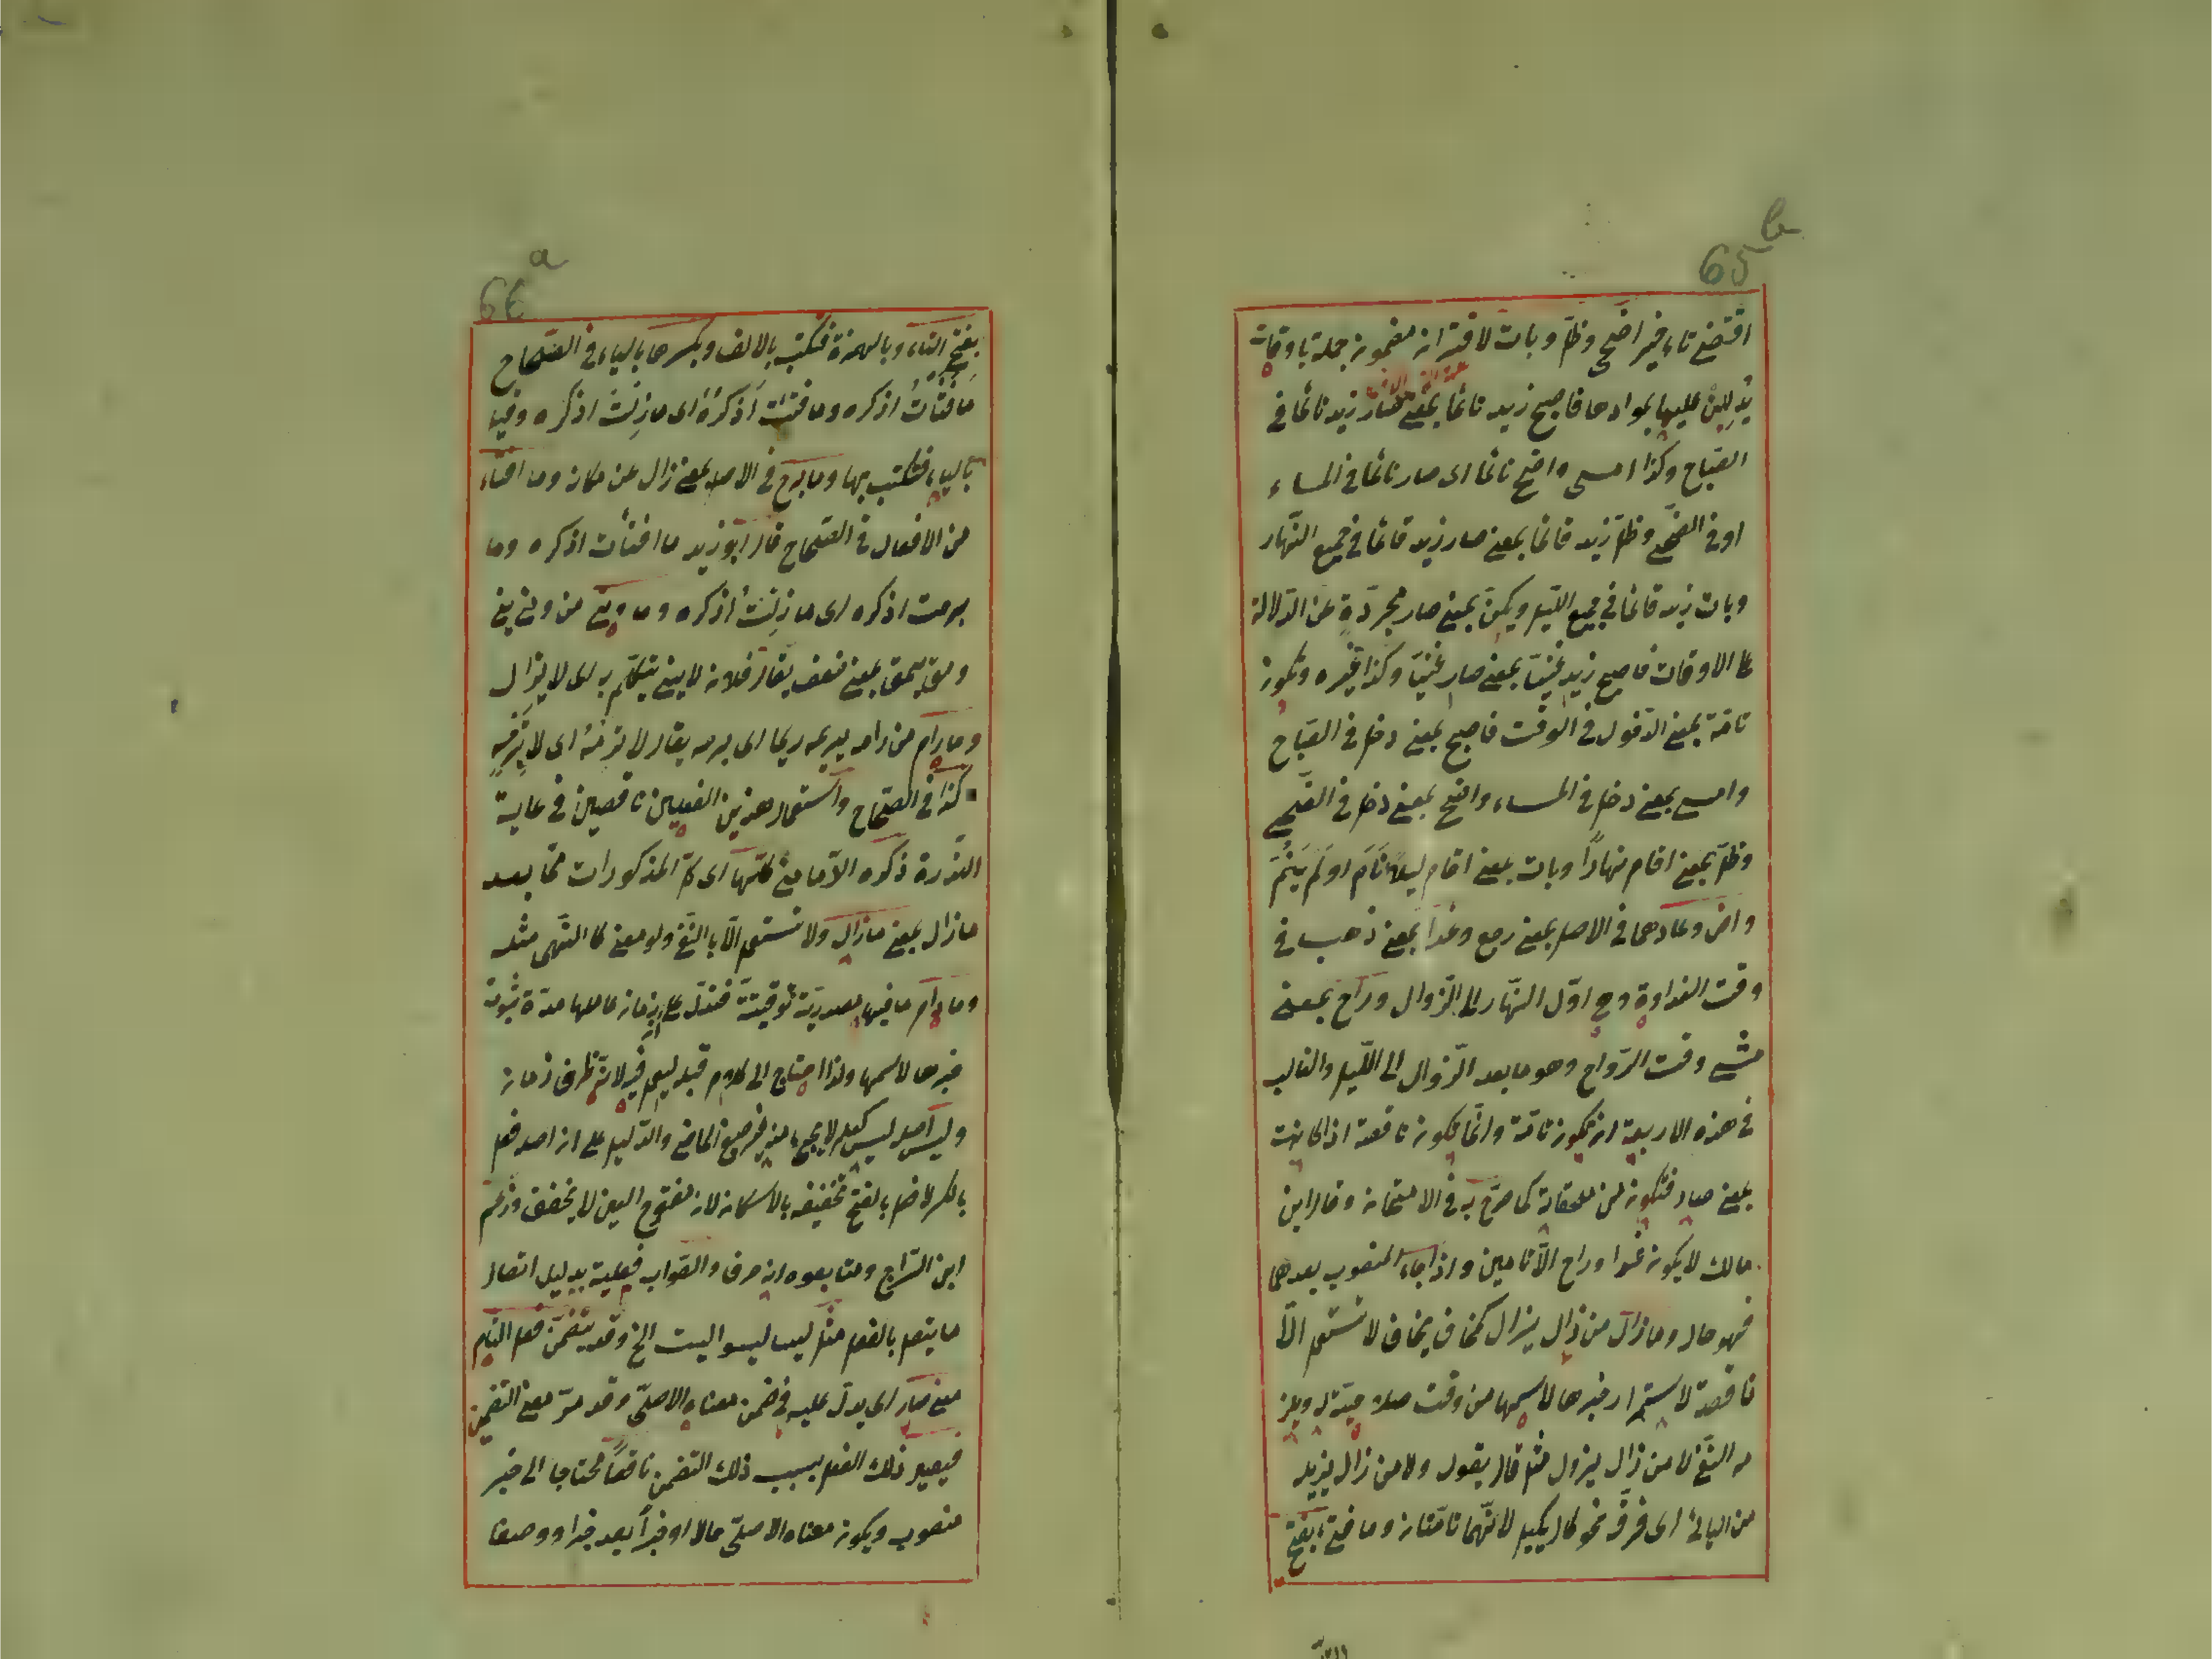 65 b
اقتضى تاء خبر اضحى وظل وبات لاقتران مضمون جملة باوقات
يدللن عليها بموادها فاصبح زيد نائما بمعنى صار زيد نائما في
الصباح وكذا امسى واضحى نائما اى صار نائما في المساء
او في الضحى وظل زيد قائما بمعنى صار زيد قائما في جميع النهار
وبات زيد قائما في جميع الليل ويكن بمعنى صار مجردة عن الدلالة
على الاوقات فاصبح زيد غنيا بمعنى صار غنيا وكذا غيره وتكون
تامة بمعنى الدخول في الوقت فاصبح بمعنى دخل في الصباح
وامسى بمعنى دخل في المساء واضحى بمعنى دخل في الضحى
وظل بمعنى اقام نهارًا وبات بمعنى اقام ليلا نَامَ او لم يَنَمْ
واض وعاد هما في الاصل بمعنى رجع وغدا بمعنى ذهب في
وقت الغداوة وهي اوّل النهار الى الزوال وراح بمعنى
مشى وقت الرّواح وهو ما بعد الزّوال الى الليل والغالب
في هذه الاربعة ان تكون تامة وانما تكون ناقصة اذا كانت
بمعنى صار فتكون من ملحقاته كما صرّح به في الامتحان وقال ابن
مالك لا يكون غدا وراح الا تامين واذا جاء المنصوب بعدهما
فهو حال وما زال من زال يزال كخاف يخاف لا تستعمل الّا
ناقصة لاستمرار خبرها لاسمها من وقت صلاحيته له ويلز
مه النفي لا من زال يزول مثل قال يقول ولا من زال يزيل
من اليائى اى فرّقه نحو كال يكيل لانّهما تامتان وما فتئ بفتح
66 a
بفتح التاء وبالهمزة فتكتب بالالف وبكسرها بالياء في الصّحاح
مَا فَتَأتُ اذكره وما فتئت اَذكرُهُ اى ما زِلتُ اذكره وفيها
بالياء فتكتب بها وما برح في الاصل بمعنى زال عن مكانه وما افتاء
من الافعال في الصّحاح قال ابو زيد ما افتأت اذكره وما
برحت اذكره اى ما زِلتُ اذكره وما وَنى من ونى ينى
ومق يمق بمعنى ضعف يقال فلان لا ينى يتكلّم به اى لا يزال
وما رام من رامه يريمه ريما اى برحه يقال لا ترمه اى لا تبرحه
كذا في الصّحاح واستعمال هذين الفعلين ناقصين في غاية
النّدرة ذكره الدّمامينى كلّها اى كلّ المذكورات ممّا بعد
ما زال بمعنى ما زال ولا تستعمل الّا بالنّفى ولو معنى كالنّهى مثله
وما دام ما فيها مصدريّة توقيتيّة فتدلّ على ان زمان عاملها مدّة ثبوت
خبرها لاسمها ولذا احتاج الى كلام قبله ليعمل فيه لانّه ظرف زمان
وليس اصله ليس كعلم لا يجىء منه غير صيغ الماضى والدّليل على ان اصله فعل
بالكسر لا فعل بالفتح تخفيفه بالاسكان لان مفتوح العين لا يخفف وزعم
ابن السّراج ومتابعوه انه حرف والصّواب فعليته بدليل اتصال
ما يتصل بالفعل مثل ليسا ليسوا ليست الخ وقد يتضمّن فعل التام
معنى صار اى يدلّ عليه في ضمن معناه الاصلىّ وقد مرّ معنى التضمين
فيصير ذلك الفعل بسبب ذلك التضمن ناقصًا محتاجا الى خبر
منصوب ويكون معناه الاصلىّ حالا او خبرًا بعد خبر او وصفا